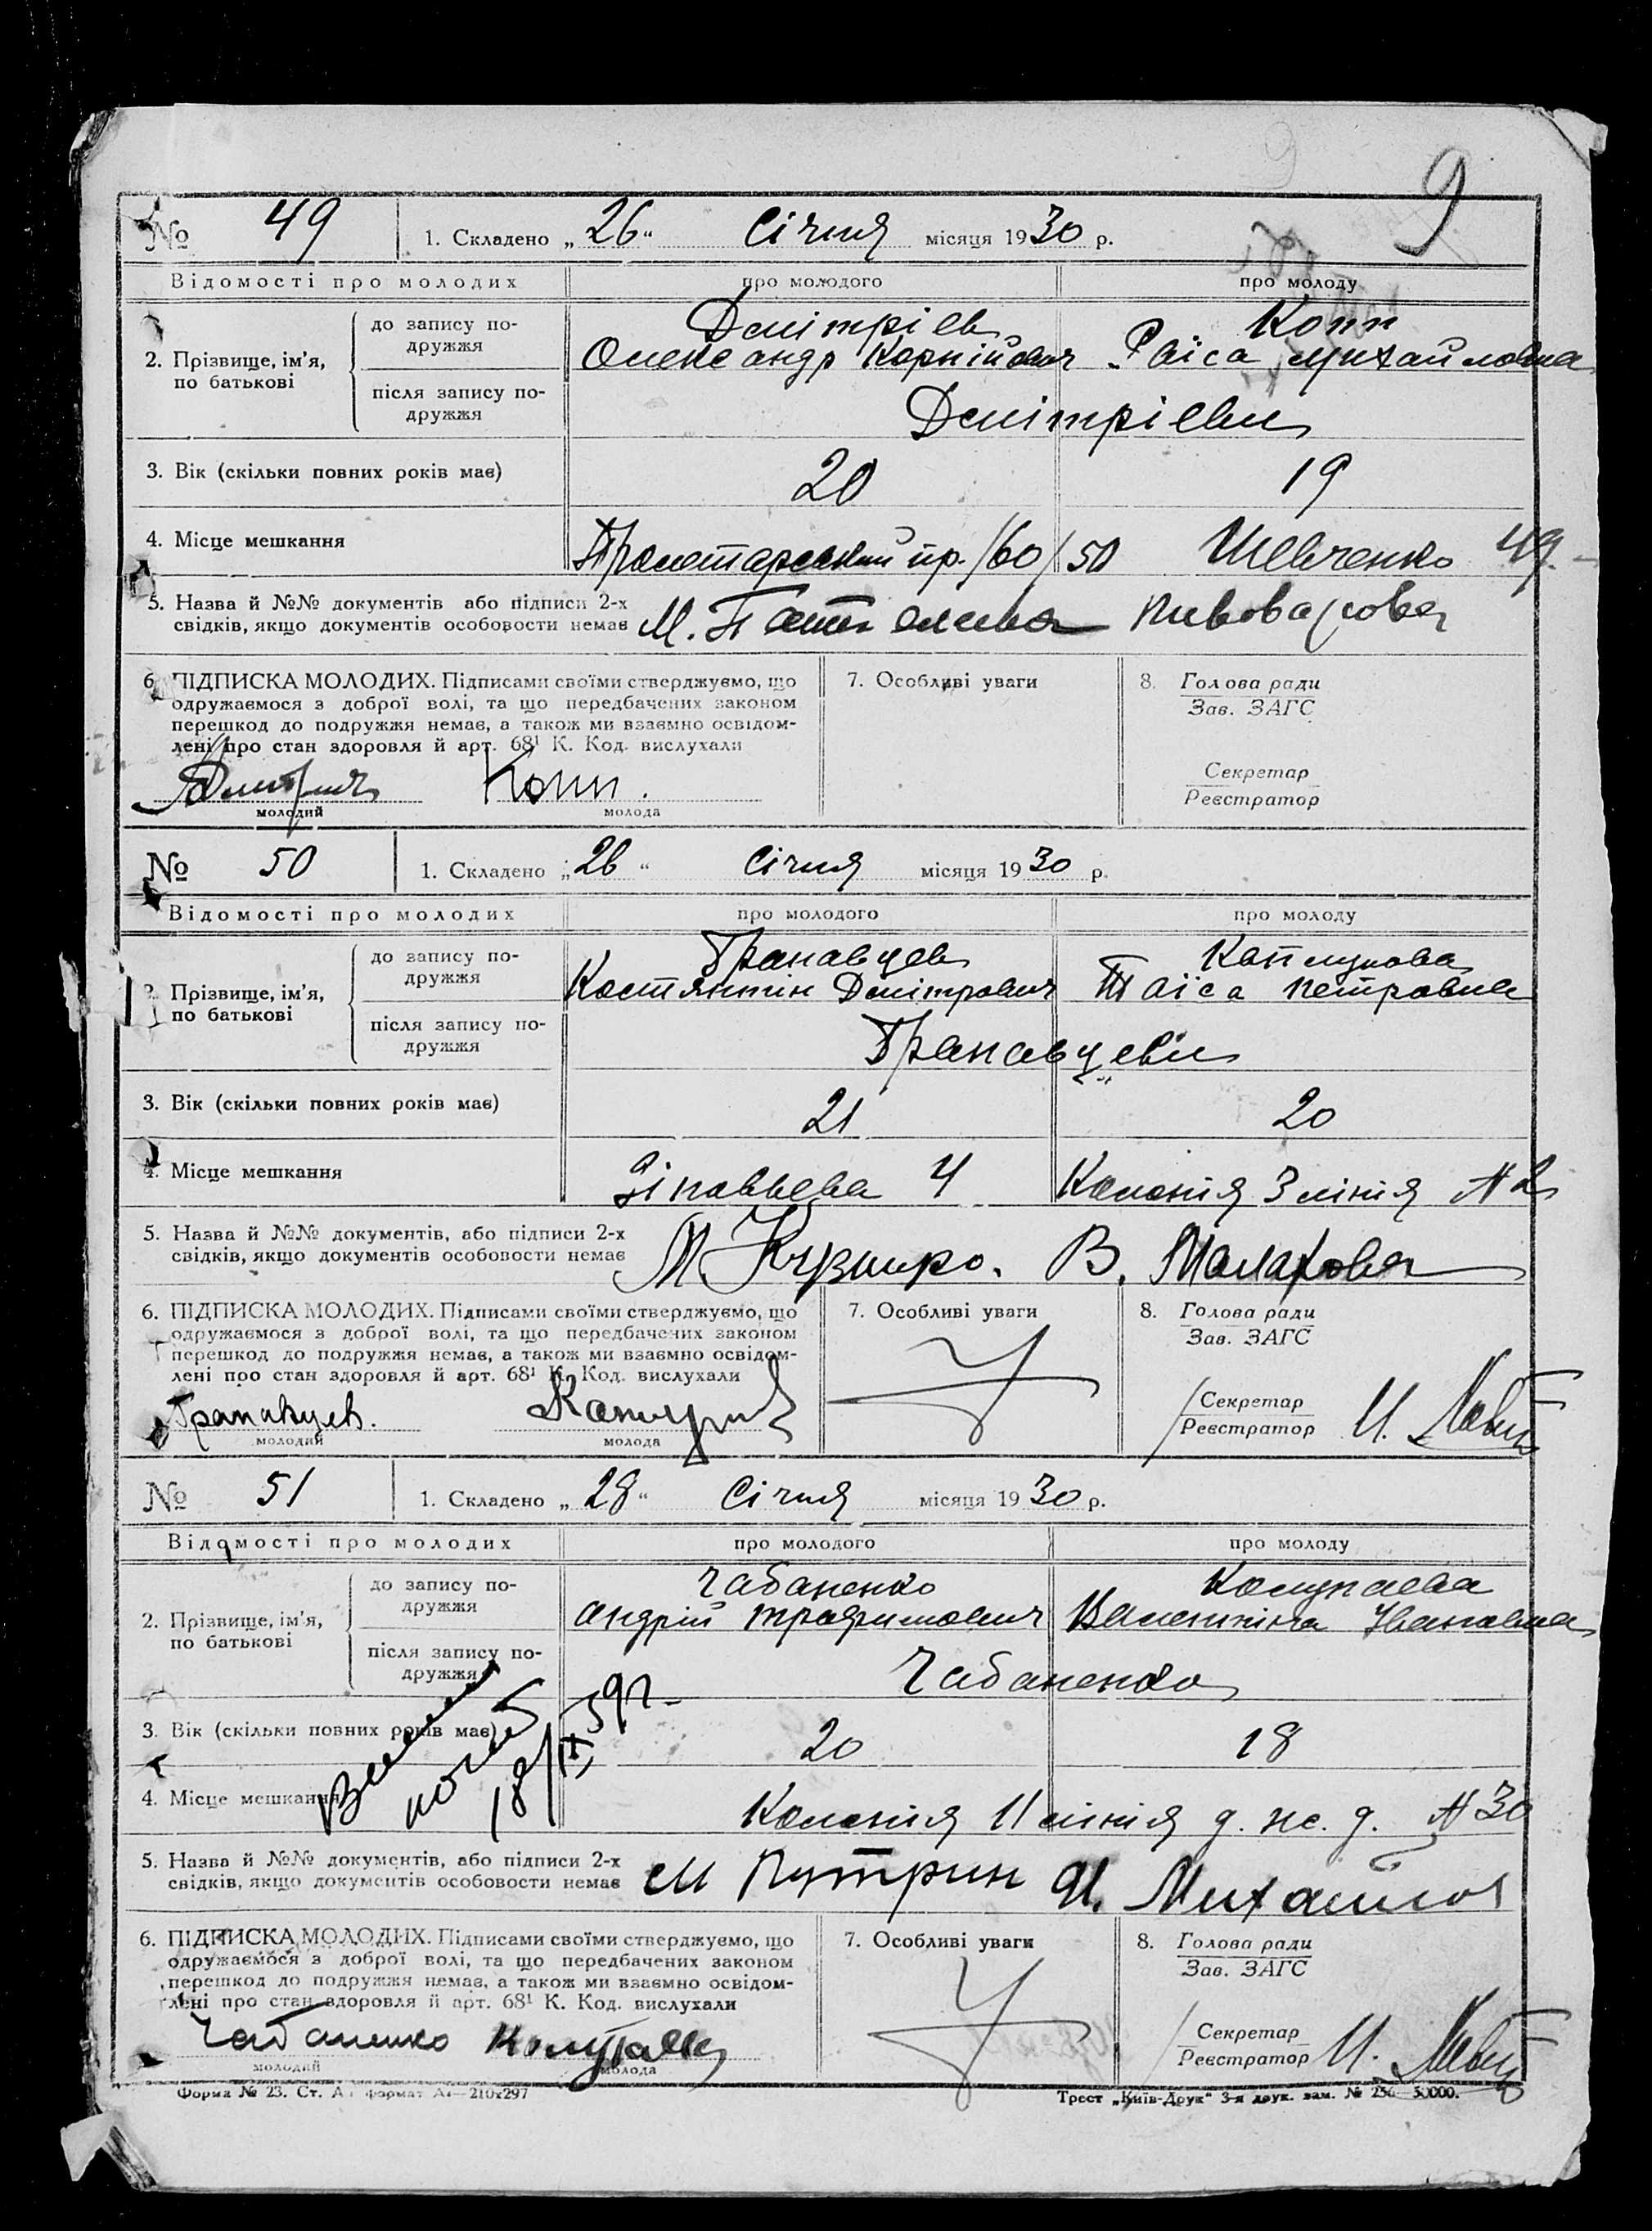 9
№ 49 1. Складено „ 26 “ Січня місяця 19 30 р.
Відомості про молодих про молодого про молоду
2. Прізвище, ім'я, по батькові
до запису по-
дружжя
Дмітрієв Копп
Олександр Корнійович Раїса Михайловна
після запису по-
дружжя
Дмітрієви
3. Вік (скільки повних років має) 20 19
4. Місце мешкання Пролетарский пр. /60/50 Шевченко 49.
5. Назва й №№ документів або підписи 2-х
свідків, якщо документів особовости немає М. Пивоварова
6. ПІДПИСКА МОЛОДИХ. Підписами своїми стверджуємо, що
одружаємося з доброї волі, та що передбачених законом
перешкод до подружжя немає, а також ми взаємно освідом-
лені про стан здоров'я й арт. 68¹ К. Код. вислухали
Копп.
молодий молода
7. Особливі уваги
8. Голова ради
Зав. ЗАГС
Секретар
Реєстратор
№ 50 1. Складено „ 26 “ Січня місяця 19 30 р.
Відомості про молодих про молодого про молоду
2. Прізвище, ім'я,
по батькові
до запису по-
дружжя
Гранавцев Каплунова
Костянтин Дмітрович Таїса Петровна
після запису по-
дружжя
Гранавцеви
3. Вік (скільки повних років має) 21 20
4. Місце мешкання Зіновьева 4 Колонія 3 лінія № 2
5. Назва й №№ документів, або підписи 2-х
свідків, якщо документів особовости немає М В. Малахова
6. ПІДПИСКА МОЛОДИХ. Підписами своїми стверджуємо, що
одружаємося з доброї волі, та що передбачених законом
перешкод до подружжя немає, а також ми взаємно освідом-
лені про стан здоровля й арт. 68¹ К. Код. вислухали
Гранавцев.
молодий молода
7. Особливі уваги
8. Голова ради
Зав. ЗАГС
Секретар
Реєстратор И.
№ 51 1. Складено „ 28 “ Січня місяця 19 30 р.
Відомості про молодих про молодого про молоду
2. Прізвище, ім'я,
по батькові
до запису по-
дружжя
Чабаненко Колупаева
Андрій Трафимович Валентіна Івановна
після запису по-
дружжя
Чабаненко
3. Вік (скільки повних років має) 20 18
18/IX 59г.
4. Місце мешкання Колонія 11 лінія д. ж. д. № 30
5. Назва й №№ документів, або підписи 2-х
свідків, якщо документів особовости немає М Путрин И. Михайлов
6. ПІДПИСКА МОЛОДИХ. Підписами своїми стверджуємо, що
одружаємося з доброї волі, та що передбачених законом
перешкод до подружжя немає, а також ми взаємно освідом-
лені про стан здоровля й арт. 68¹ К. Код. вислухали
Чабаненко
молодий молода
7. Особливі уваги
8. Голова ради
Зав. ЗАГС
Секретар
Реєстратор И.
Форма № 23. Ст. А формат А₄—210х297 Трест „Київ-Друк“ 3-я друк. зам. № 256—50000.